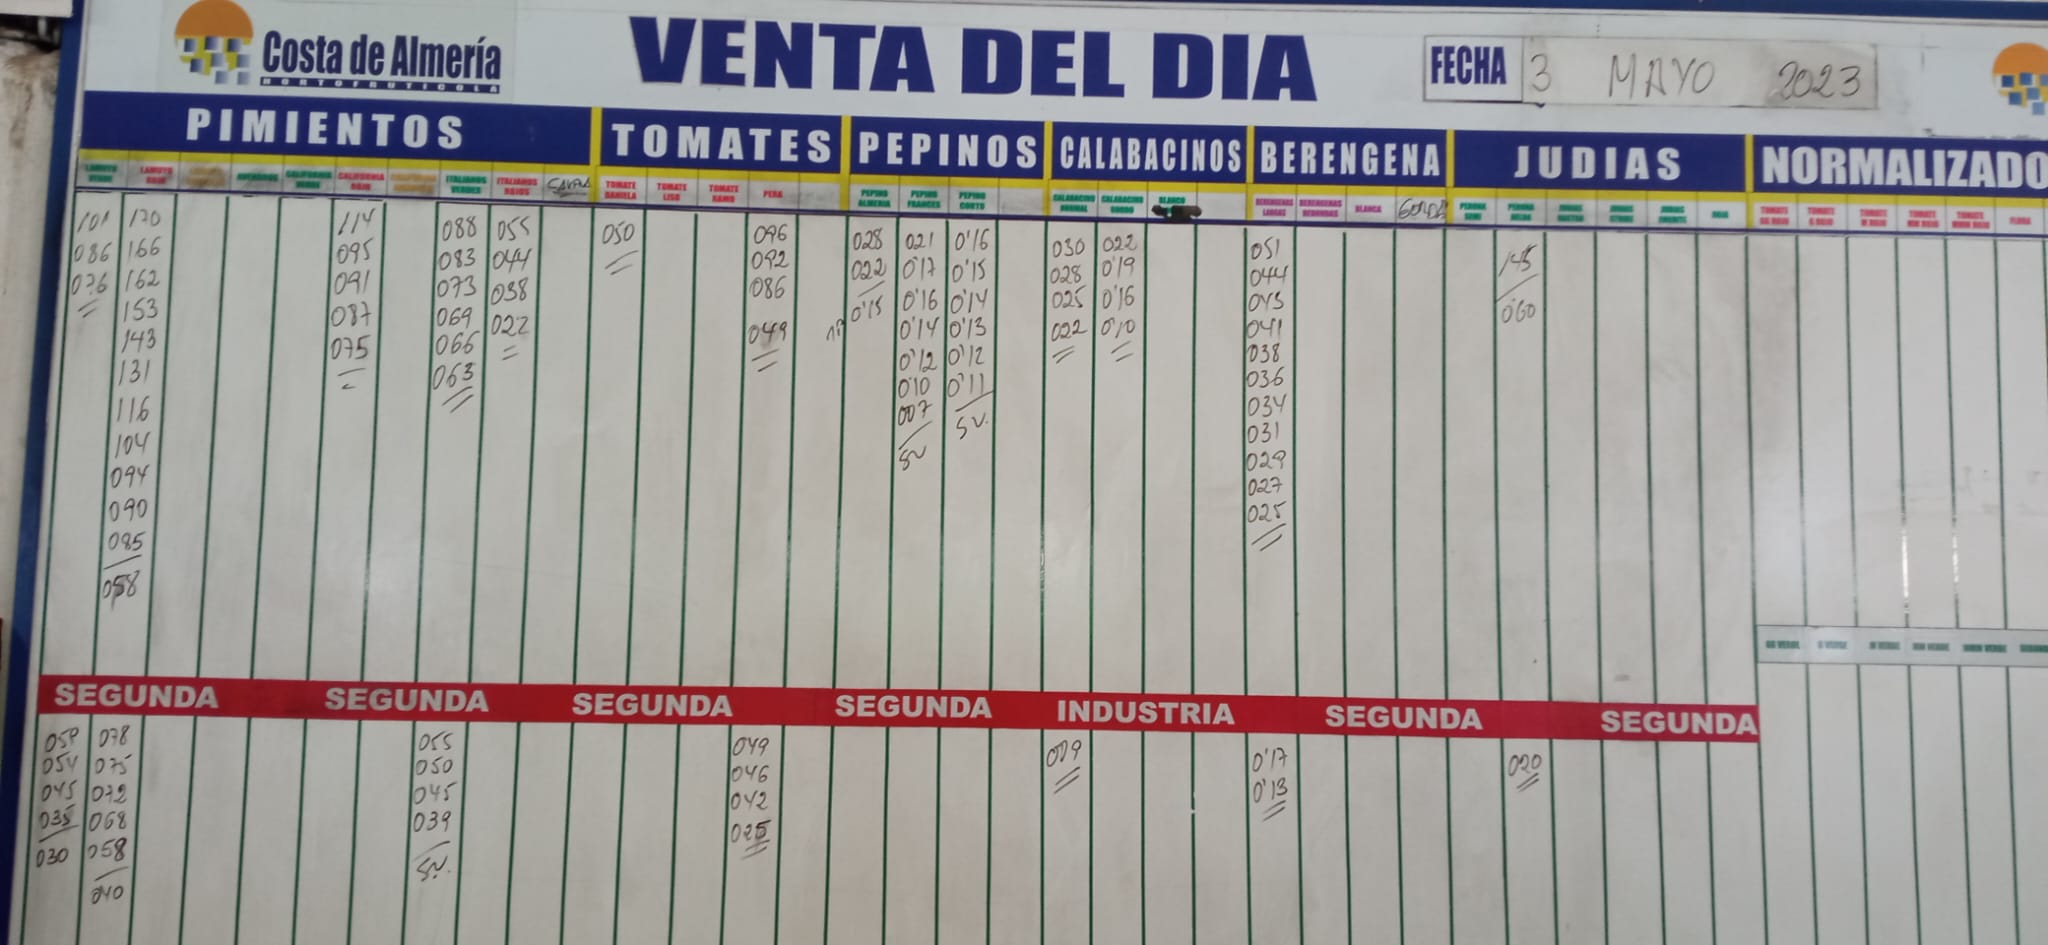 Costa de Almería
HORTOFRUTICOLA
VENTA DEL DIA
FECHA 3 MAYO 2023
PIMIENTOS TOMATES PEPINOS CALABACINOS BERENGENA JUDIAS NORMALIZADO
LAMUYO VERDE
LAMUYO ROJO
CALIFORNIA VERDE
CALIFORNIA ROJO
ITALIANOS VERDES
ITALIANOS ROJOS
TOMATE DANIELA
TOMATE LISO
TOMATE RAMO
PERA
PEPINO ALMERIA
PEPINO FRANCES
PEPINO CORTO
CALABACINO NORMAL
CALABACINO GORDO
BLANCO
BERENGENAS LARGAS
BERENGENAS REDONDAS
BLANCA
GORDA
PERONA SEMI
PERONA
101
086
076
170
166
162
153
143
131
116
104
094
090
085
058
114
095
091
087
075
088
083
073
069
066
063
055
044
038
022
050
096
092
086
049
028
022
0'15
021
0'17
0'16
0'14
0'12
0'10
007
SV
0'16
0'15
0'14
0'13
0'12
0'11
SV.
030
028
025
022
022
0'19
0'16
0'10
051
044
043
041
038
036
034
031
029
027
025
145
060
SEGUNDA SEGUNDA SEGUNDA SEGUNDA INDUSTRIA SEGUNDA SEGUNDA
059
054
045
035
030
078
075
072
068
058
040
055
050
045
039
SV.
049
046
042
025
009
0'17
0'13
020